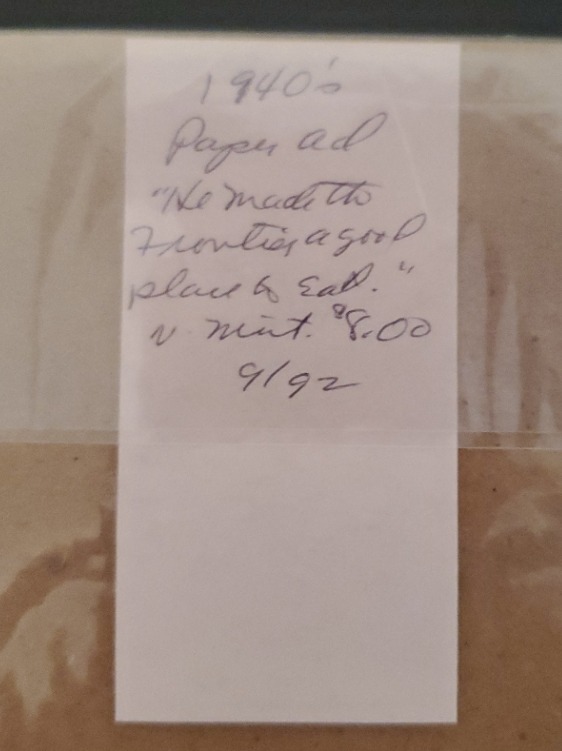 1940's
Paper ad
"He made the
Frontier a good
place to Eat."
N. Mint. $8.00
9/92